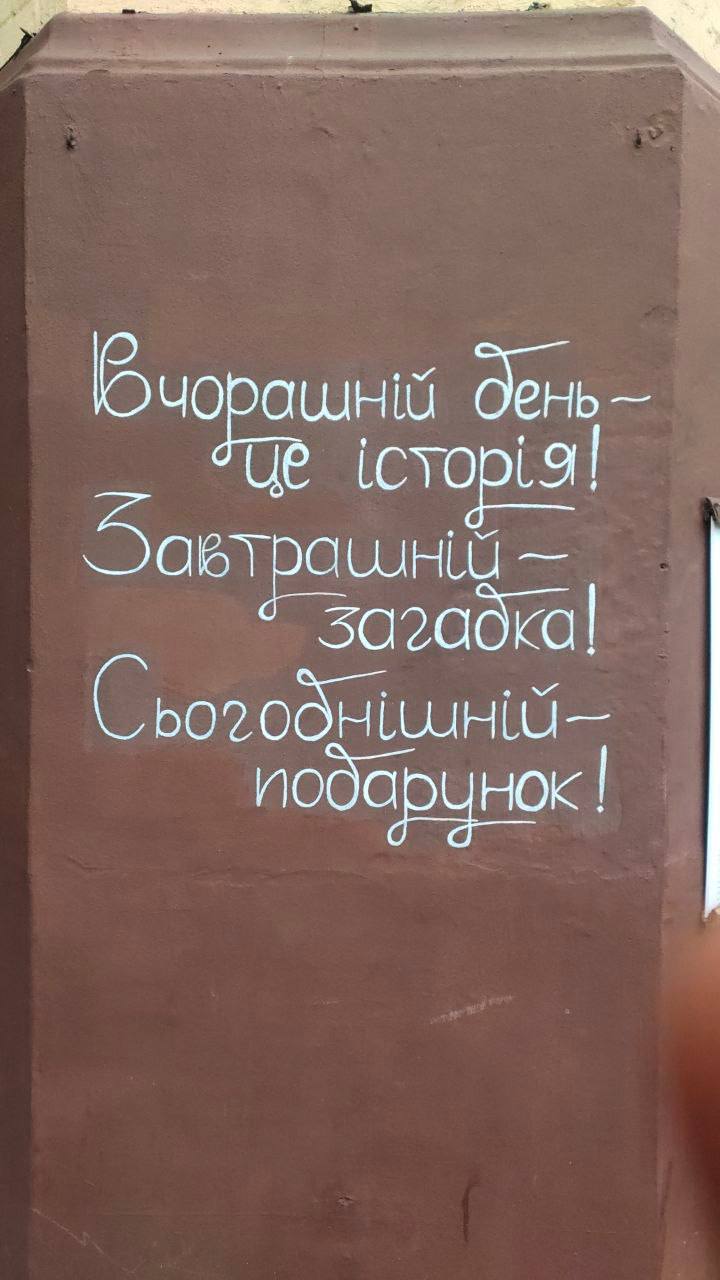 Вчорашній день –
це історія!
Завтрашній –
загадка!
Сьогоднішній –
подарунок!